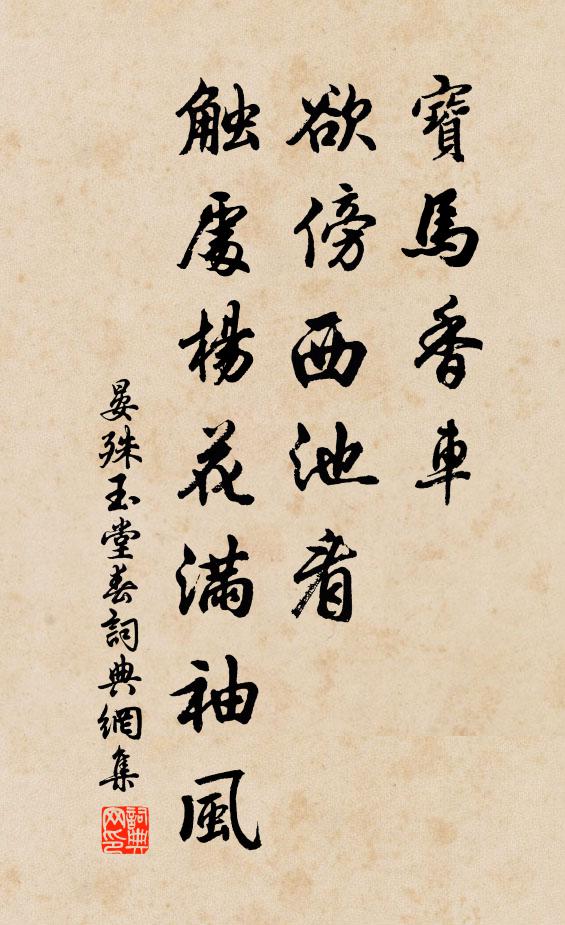 寶馬香車
欲傍西池看
触處楊花滿袖風
晏殊玉堂春詞典網集
詞典网印